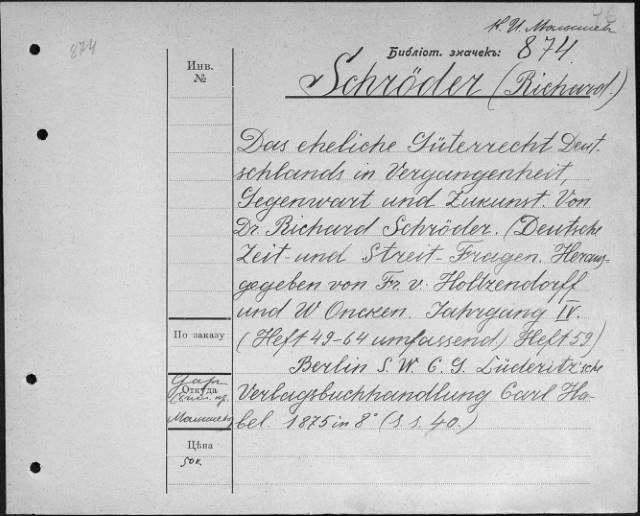 К. И. Малышев
874
Библіот. значекъ: 874.
Инв.
№
Schröder (Richard.)
Das eheliche Güterrecht Deut-
schlands in Vergangenheit,
Gegenwart und Zukunst. Von
Dr. Richard Schröder. (Deutsche
Zeit- und Streit-Fragen. Heraus-
gegeben von Fr. v. Holtzendorff
und W Oncken. Jahrgang IV.
По заказу
(Heft 49-64 umfassend) Heft 59)
Berlin S. W. C. G. Lüderitz'sche
Даръ
Откуда
Малышева
Verlagsbuchhandlung Carl Ha-
bel. 1875 in 8° (s. s. 40.)
Цѣна
50 к.